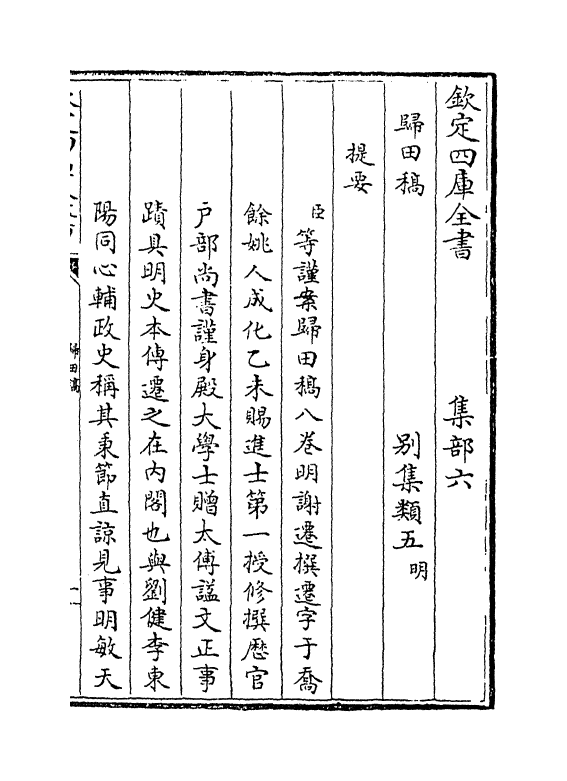 欽定四庫全書　集部六
歸田稿　别集類五明
提要
臣等謹案歸田稿八卷明謝遷撰遷字于喬
餘姚人成化乙未賜進士第一授修撰歴官
户部尚書謹身殿大學士贈太傅諡文正事
蹟具明史本傳遷之在内閣也與劉健李東
陽同心輔政史稱其秉節直諒見事明敏天
歸田稿